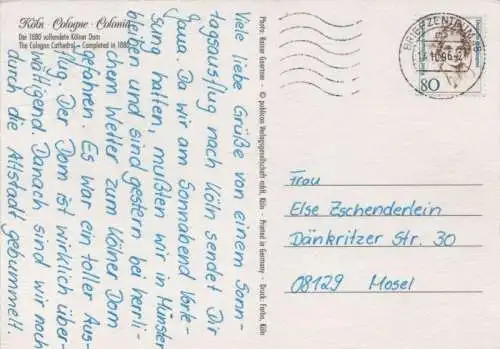 Köln · Cologne · Colonia
Der 1880 vollendete Kölner Dom
The Cologne Cathedral – Completed in 1880
Viele liebe Grüße von einem Sonn-
tagsausflug nach Köln sendet Dir
Da wir am Sonnabend Vorle-
sung hatten, mußten wir in Münster
und sind gestern bei herrli-
chem Wetter zum Kölner Dom
gefahren. Es war ein toller Aus-
flug. Der Dom ist wirklich über-
wältigend. Danach sind wir noch
durch die Altstadt gebummelt.
Photo: Rainer Gaertner · © publicon Verlagsgesellschaft mbH, Köln · Printed in Germany · Druck: Farbo, Köln
BRIEFZENTRUM
80
Frau
Else Zschenderlein
Dänkritzer Str. 30
08129 Mosel